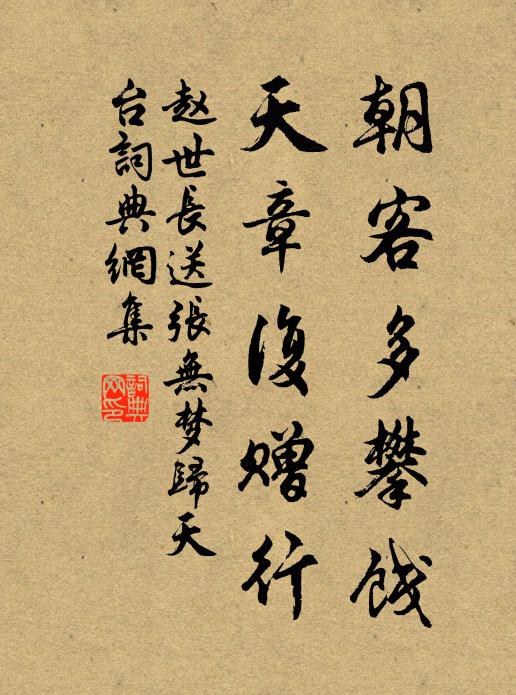 朝客多攀饯
天章復赠行
赵世長送張無梦歸天
台詞典網集
詞典网印